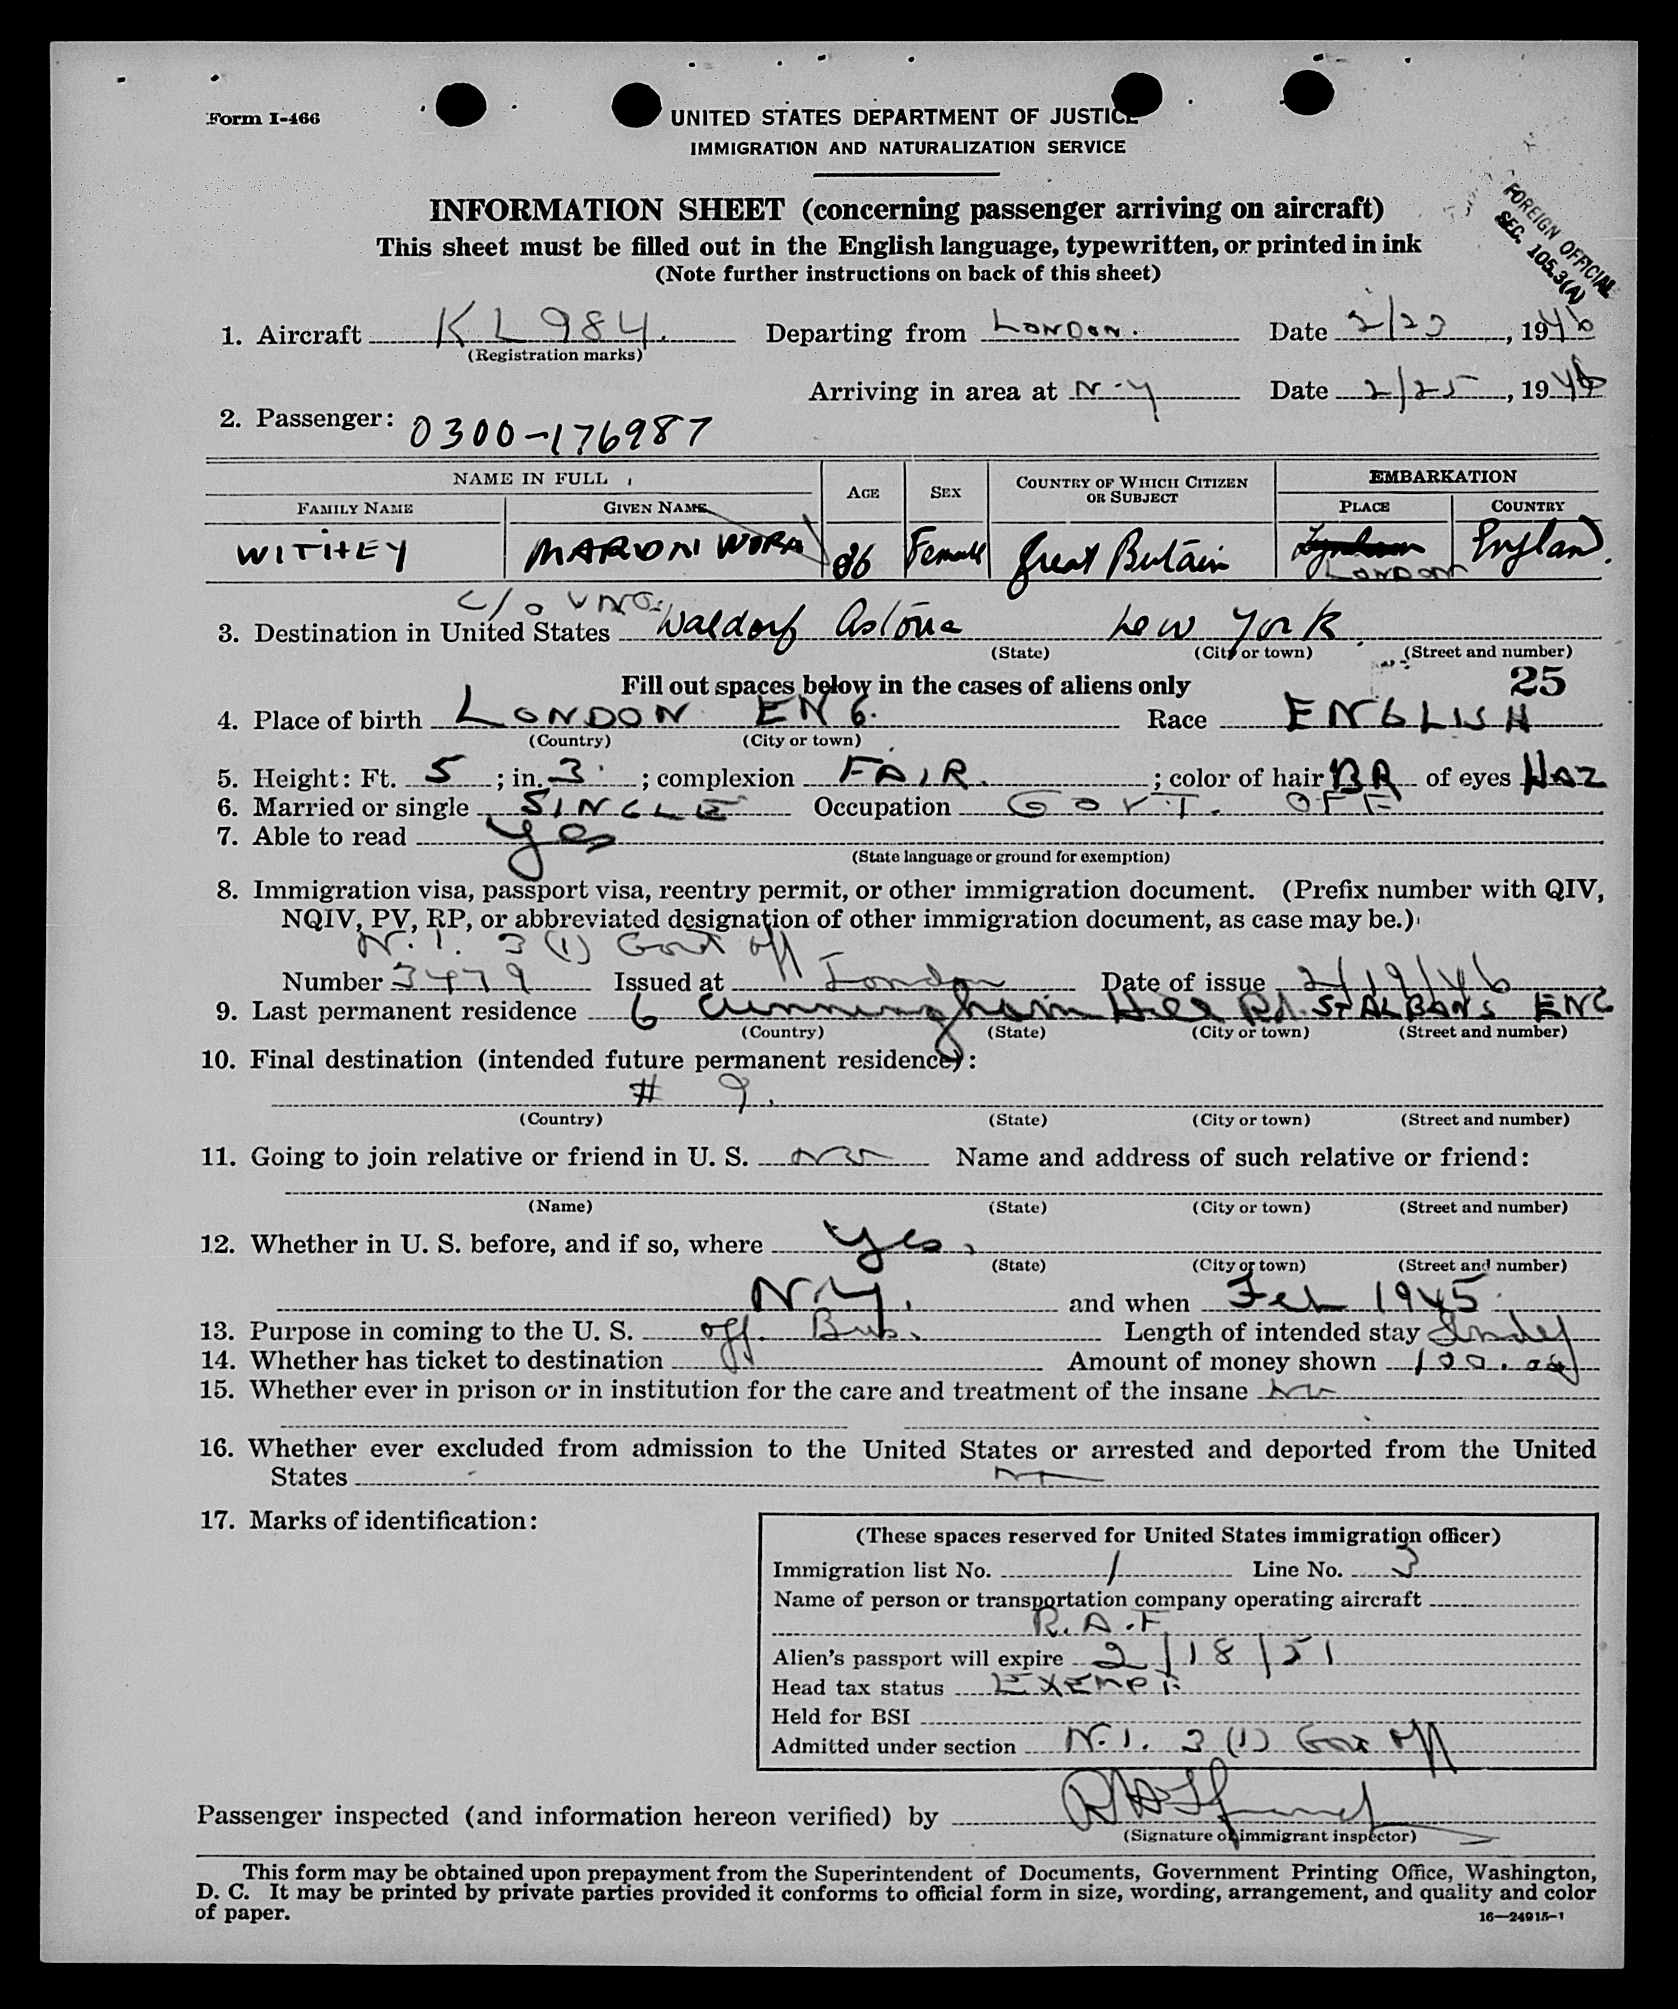 Form I-466
UNITED STATES DEPARTMENT OF JUSTICE
IMMIGRATION AND NATURALIZATION SERVICE
INFORMATION SHEET (concerning passenger arriving on aircraft)
This sheet must be filled out in the English language, typewritten, or printed in ink
(Note further instructions on back of this sheet)
FOREIGN OFFICIAL
SEC. 105.3(A)
1. Aircraft KL984. Departing from LONDON. Date 2/23, 1946
(Registration marks)
Arriving in area at N.Y Date 2/25, 1946
2. Passenger: 0300-176987
NAME IN FULL AGE SEX COUNTRY OF WHICH CITIZEN OR SUBJECT EMBARKATION
FAMILY NAME GIVEN NAME PLACE COUNTRY
WITHEY MARION 36 Female Great Britain LONDON England.
c/o UNO.
3. Destination in United States Waldorf Astoria New York.
(State) (City or town) (Street and number)
Fill out spaces below in the cases of aliens only 25
4. Place of birth LONDON ENG. Race ENGLISH
(Country) (City or town)
5. Height: Ft. 5; in. 3; complexion FAIR.; color of hair BR of eyes HAZ
6. Married or single SINGLE Occupation GOVT. OFF
7. Able to read Yes
(State language or ground for exemption)
8. Immigration visa, passport visa, reentry permit, or other immigration document. (Prefix number with QIV,
NQIV, PV, RP, or abbreviated designation of other immigration document, as case may be.)
N.I. 3 (1) Govt off
Number 3479 Issued at London Date of issue 2/19/46
9. Last permanent residence 6 Cunningham Hill Rd. ST ALBANS ENG
(Country) (State) (City or town) (Street and number)
10. Final destination (intended future permanent residence):
# 9.
(Country) (State) (City or town) (Street and number)
11. Going to join relative or friend in U. S. no Name and address of such relative or friend:
(Name) (State) (City or town) (Street and number)
12. Whether in U. S. before, and if so, where Yes.
(State) (City or town) (Street and number)
N.Y. and when Feb 1945.
13. Purpose in coming to the U. S. off. Bus. Length of intended stay Indef
14. Whether has ticket to destination Amount of money shown 100.00
15. Whether ever in prison or in institution for the care and treatment of the insane no
16. Whether ever excluded from admission to the United States or arrested and deported from the United
States no
17. Marks of identification:
(These spaces reserved for United States immigration officer)
Immigration list No. 1 Line No. 3
Name of person or transportation company operating aircraft
R.A.F.
Alien's passport will expire 2/18/51
Head tax status EXEMPT
Held for BSI
Admitted under section N.I. 3 (1) Gov off
Passenger inspected (and information hereon verified) by
(Signature of immigrant inspector)
This form may be obtained upon prepayment from the Superintendent of Documents, Government Printing Office, Washington,
D. C. It may be printed by private parties provided it conforms to official form in size, wording, arrangement, and quality and color
of paper.
16—24915-1